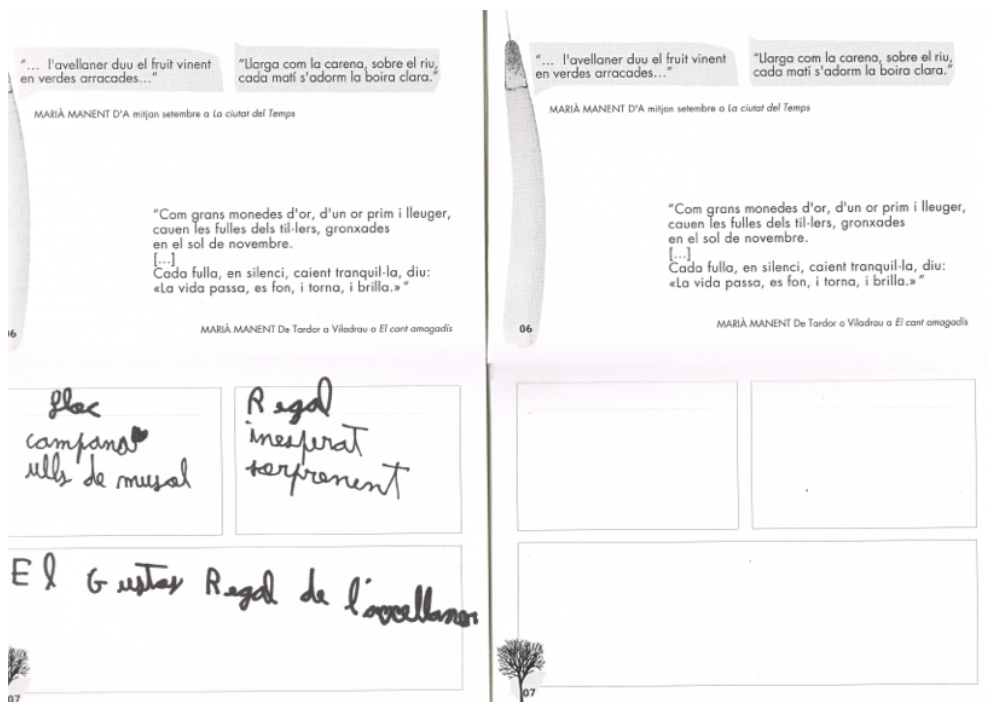 "... l'avellaner duu el fruit vinent
en verdes arracades..."
"Llarga com la carena, sobre el riu,
cada matí s'adorm la boira clara."
MARIÀ MANENT D'A mitjan setembre a La ciutat del Temps
"Com grans monedes d'or, d'un or prim i lleuger,
cauen les fulles dels til·lers, gronxades
en el sol de novembre.
[...]
Cada fulla, en silenci, caient tranquil·la, diu:
«La vida passa, es fon, i torna, i brilla.»"
MARIÀ MANENT De Tardor a Viladrau a El cant amagadís
06
floc
campana
ulls de musol
Regal
inesperat
sorprenent
El Gustos Regal de l'avellaner
07
"... l'avellaner duu el fruit vinent
en verdes arracades..."
"Llarga com la carena, sobre el riu,
cada matí s'adorm la boira clara."
MARIÀ MANENT D'A mitjan setembre a La ciutat del Temps
"Com grans monedes d'or, d'un or prim i lleuger,
cauen les fulles dels til·lers, gronxades
en el sol de novembre.
[...]
Cada fulla, en silenci, caient tranquil·la, diu:
«La vida passa, es fon, i torna, i brilla.»"
06
MARIÀ MANENT De Tardor a Viladrau a El cant amagadís
07